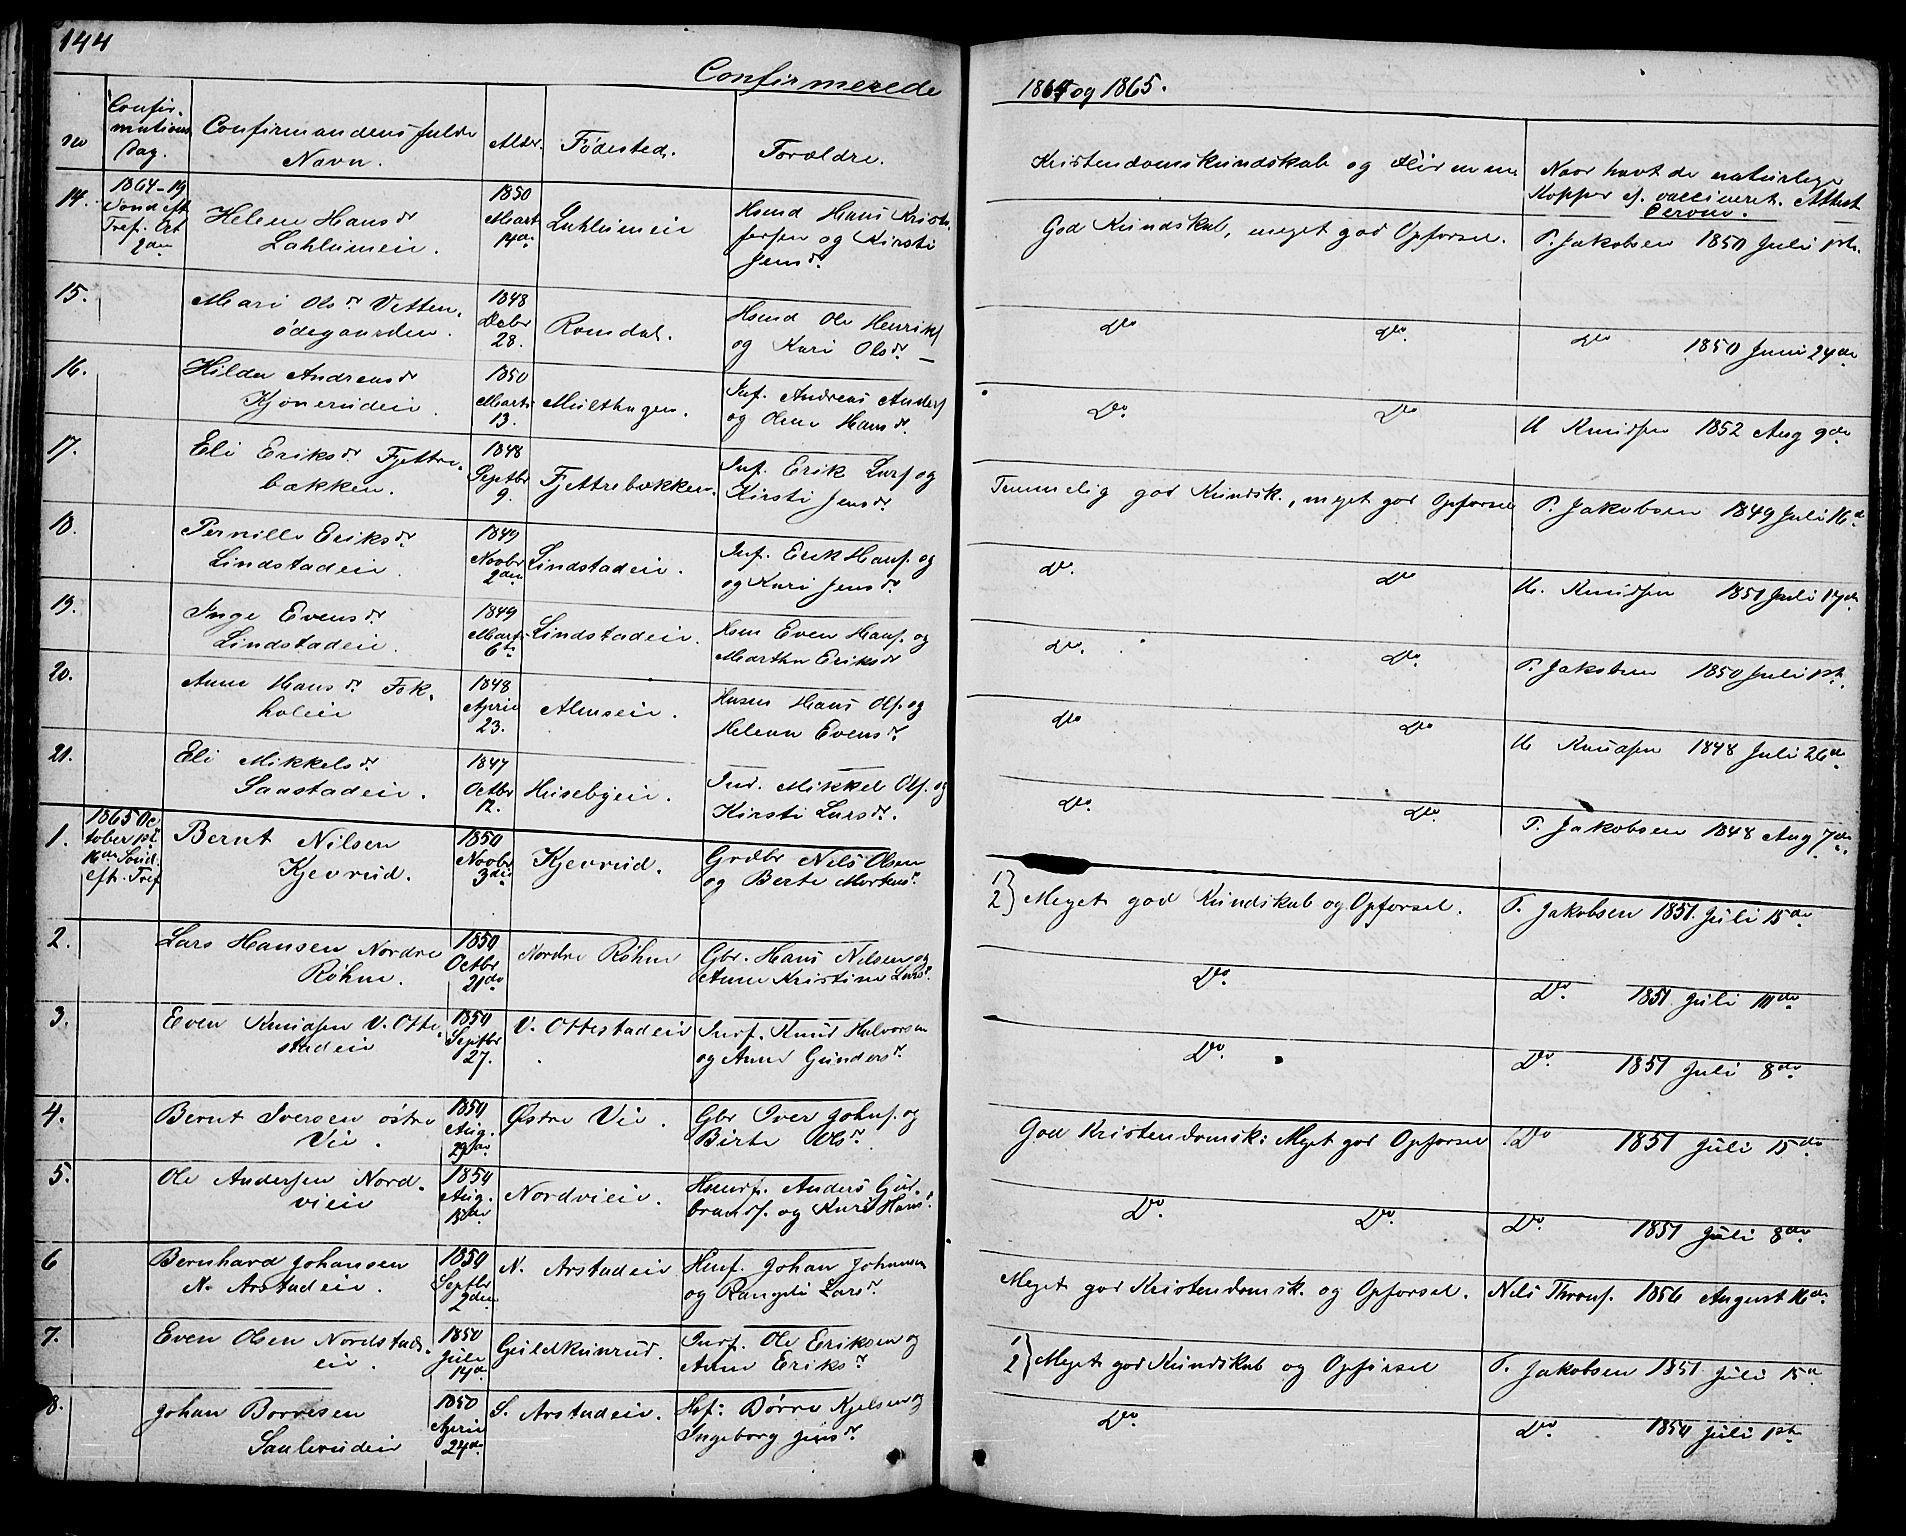 144
Confirmerede
1864 og 1865.
No
Confir-
mations
Dag.
Confirmandens fulde
Navn.
Alder.
Fødested.
Forældre.
Kristendomskundskab og
Naar havt de naturlige
Kopper el. vaccineret. Attest
derom.
14.
1864-19
Sond eft
Tref. Oct
2den
Helene Hansdr
Lahlumeie.
1850
Mart
14de
Lahlumeie
Hsmd Hans Krist.
fersen og Kirsti
Jensdr
God Kundskab, meget god Opførsel.
P. Jakobsen 1850 Juli 1ste.
15.
Mari Olsdr Vetten,
ødegaarden.
1848
Decbr
28.
Romdal.
Hsmd Ole Henriks
og Kari Olsdr
Do
Do.
Do 1850 Juni 24de
16.
Hilda Andreasdr
Kjønerudeie.
1850
Marts
13.
Multhagen.
Inf. Andreas Anders
og Olene Hansdr
Do.
Do
U Knudsen 1852 Aug 9de
17.
Eli Eriksdr Fjettre-
bakken.
1848
Septbr
9.
Fjettrebakken.
Inf. Erik Larss og
Kirsti Jensdr.
Temmelig god Kundsk., meget god Opførsel
P. Jakobsen 1849 Juli 16d.
18.
Pernille Eriksdr.
Lindstadeie.
1849
Novbr
2den
Lindstadeie.
Inf. Erik Hanss. og
og Kari Jensdr.
Do.
Do
U. Knudsen 1851 Juli 17de.
19.
Inge Evensdr
Lindstadeie.
1849
Marts
6te
Lindstadeie.
Hsm Even Hanss. og
Martha Eriksdr
Do.
Do.
P. Jakobsen 1850 Juli 1ste.
20.
Anne Hansdr. Fok-
holeie
1848
April
23.
Almseie.
Husm Hans Ols. og
Helena Evensdr
Do
Do
U Knudsen 1848 Juli 26de
21.
Eli Mikkelsdr.
Saastadeie.
1847
Octbr
12.
Husebyeie.
Ind. Mikkel Ols. og
Kirsti Larsdr.
Do.
Do.
P. Jakobsen 1848 Aug 7de.
1.
1865 Oc
tober 1ste
16de Sønd.
eft. Tref
Bernt Nilsen
Kjevrud.
1850
Novbr
3die
Kjevrud.
Grdbr Nils Olsen
og Berte Mortensdr.
1/2} Meget god Kundskab og Opførsel.
P. Jakobsen 1851 Juli 15de
2.
Lars Hansen Nordre
Røhne.
1850
Octbr
21de
Nordre Røhne
Gbr. Hans Nilsen og
Anne Kristine Larsdr.
Do.
Do. 1851 Juli 10de
3.
Even Knudsen V. Otte-
stadeie
1850
Septbr
27.
V. Ottestadeie
Indf. Knud Halvorsen
og Anne Gundersdr.
Do.
Do 1851 Juli 8de
4.
Bernt Iversen østre
Vie.
1850
Aug.
29de
Østre Vie.
Gbr Iver Johns. og
Birte Olsdr.
God Kristendomsk: Meget god Opførsel
Do 1851 Juli 15de
5.
Ole Andersen Nord-
vieie
1850
Aug.
15de
Nordvieie.
Hsmdf. Anders Gud-
brands. og Kari Hansdr.
Do.
Do.
Do. 1851 Juli 8de
6
Bernhard Johansen
N. Arstadeie.
1850
Septbr
2den
N. Arstadeie
Hmf. Johan Johannesen
og Rangdi Larsdr.
Meget god Kristendomsk. og Opførsel.
Nils Throns. 1856 August 16de
7.
Even Olsen Nordstad-
eie.
1850
Juli
14de
Guldkunrud.
Indf. Ole Eriksen og
Anne Eriksdr
1/2} Meget god Kundskab og Opførsel
P. Jakobsen 1851 Juli 15d
8.
Johan Borresen
Saulerudeie
1850
April
24de
S. Arstadeie.
Hsf: Børre Kjelsen og
Ingeborg Jensdr.
Do
Do. 1850 Juli 1ste